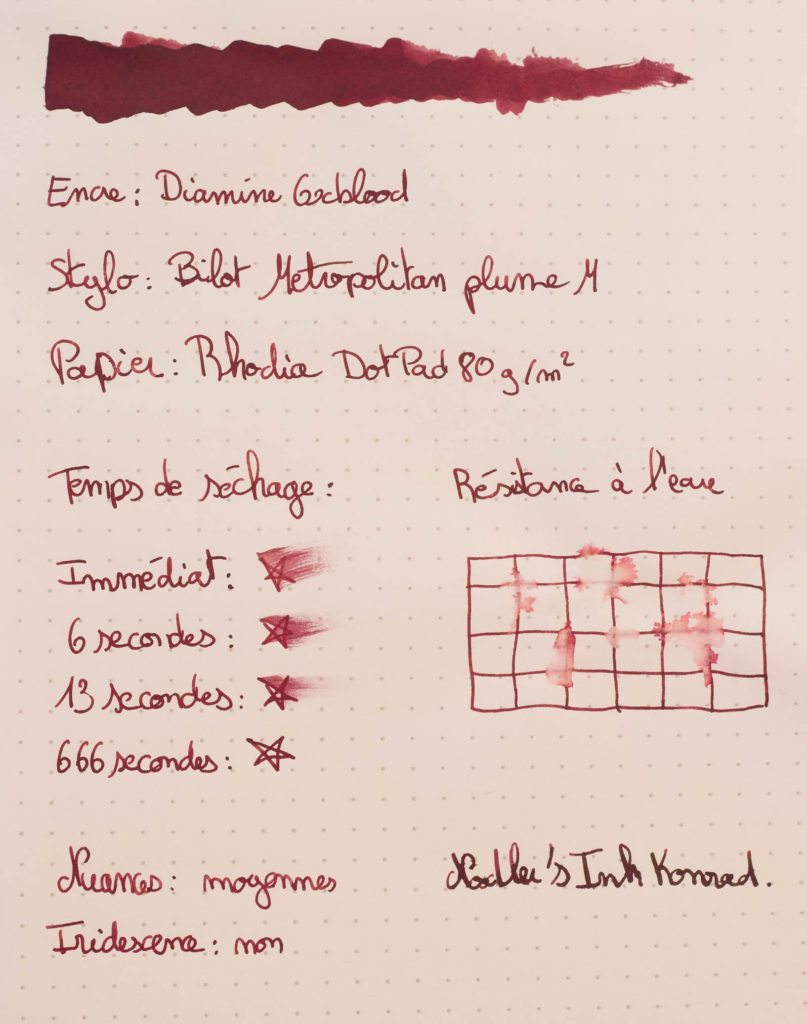 Encre : Diamine Oxblood
Stylo : Pilot Metropolitan plume M
Papier : Rhodia DotPad 80 g/m²
Temps de séchage :
Résistance à l'eau
Immédiat :
6 secondes :
13 secondes :
666 secondes :
Nuances : moyennes
Noodler's Ink Konrad.
Iridescence : non